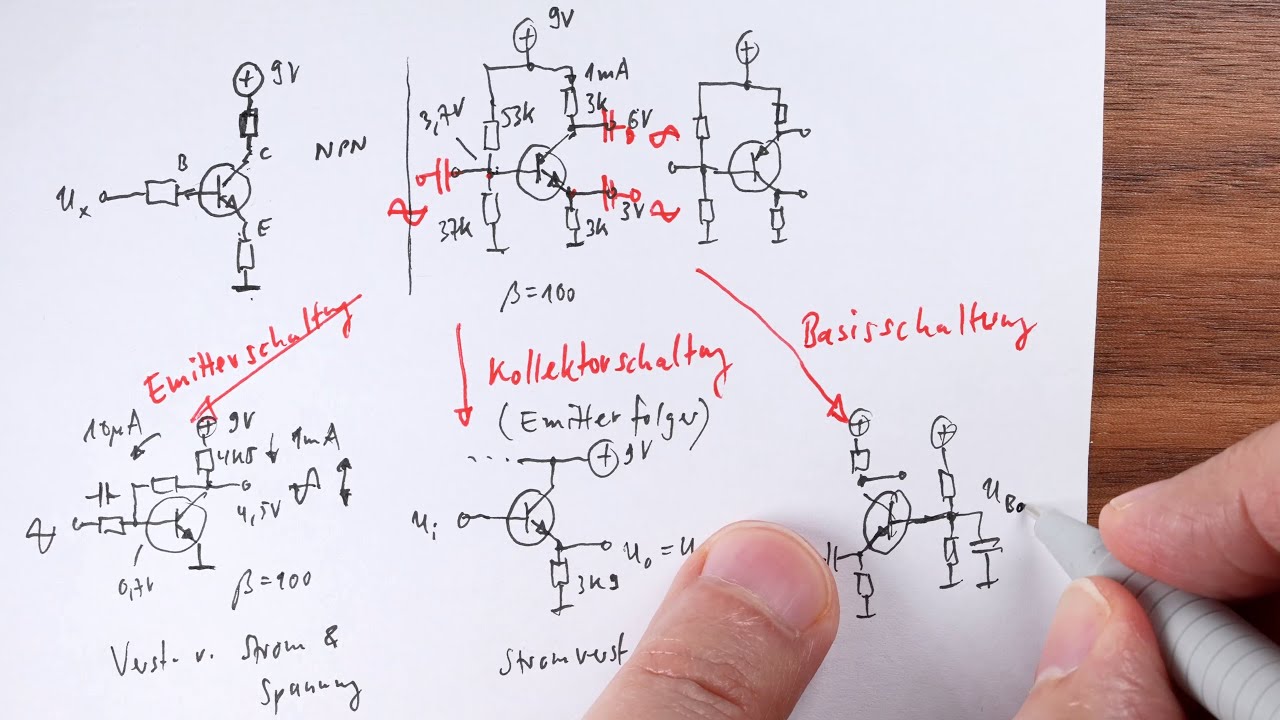 9V
NPN
B
C
E
Ux
9V
1mA
3,7V
53k
3k
6V
37k
3V
3k
β=100
Emitterschaltung
Kollektorschaltung
(Emitterfolger)
Basisschaltung
10µA
9V
4k5
1mA
4,5V
0,7V
β=100
Verst. v. Strom &
Spannung
9V
Ui
Uo = U
3k9
Stromverst
UBo